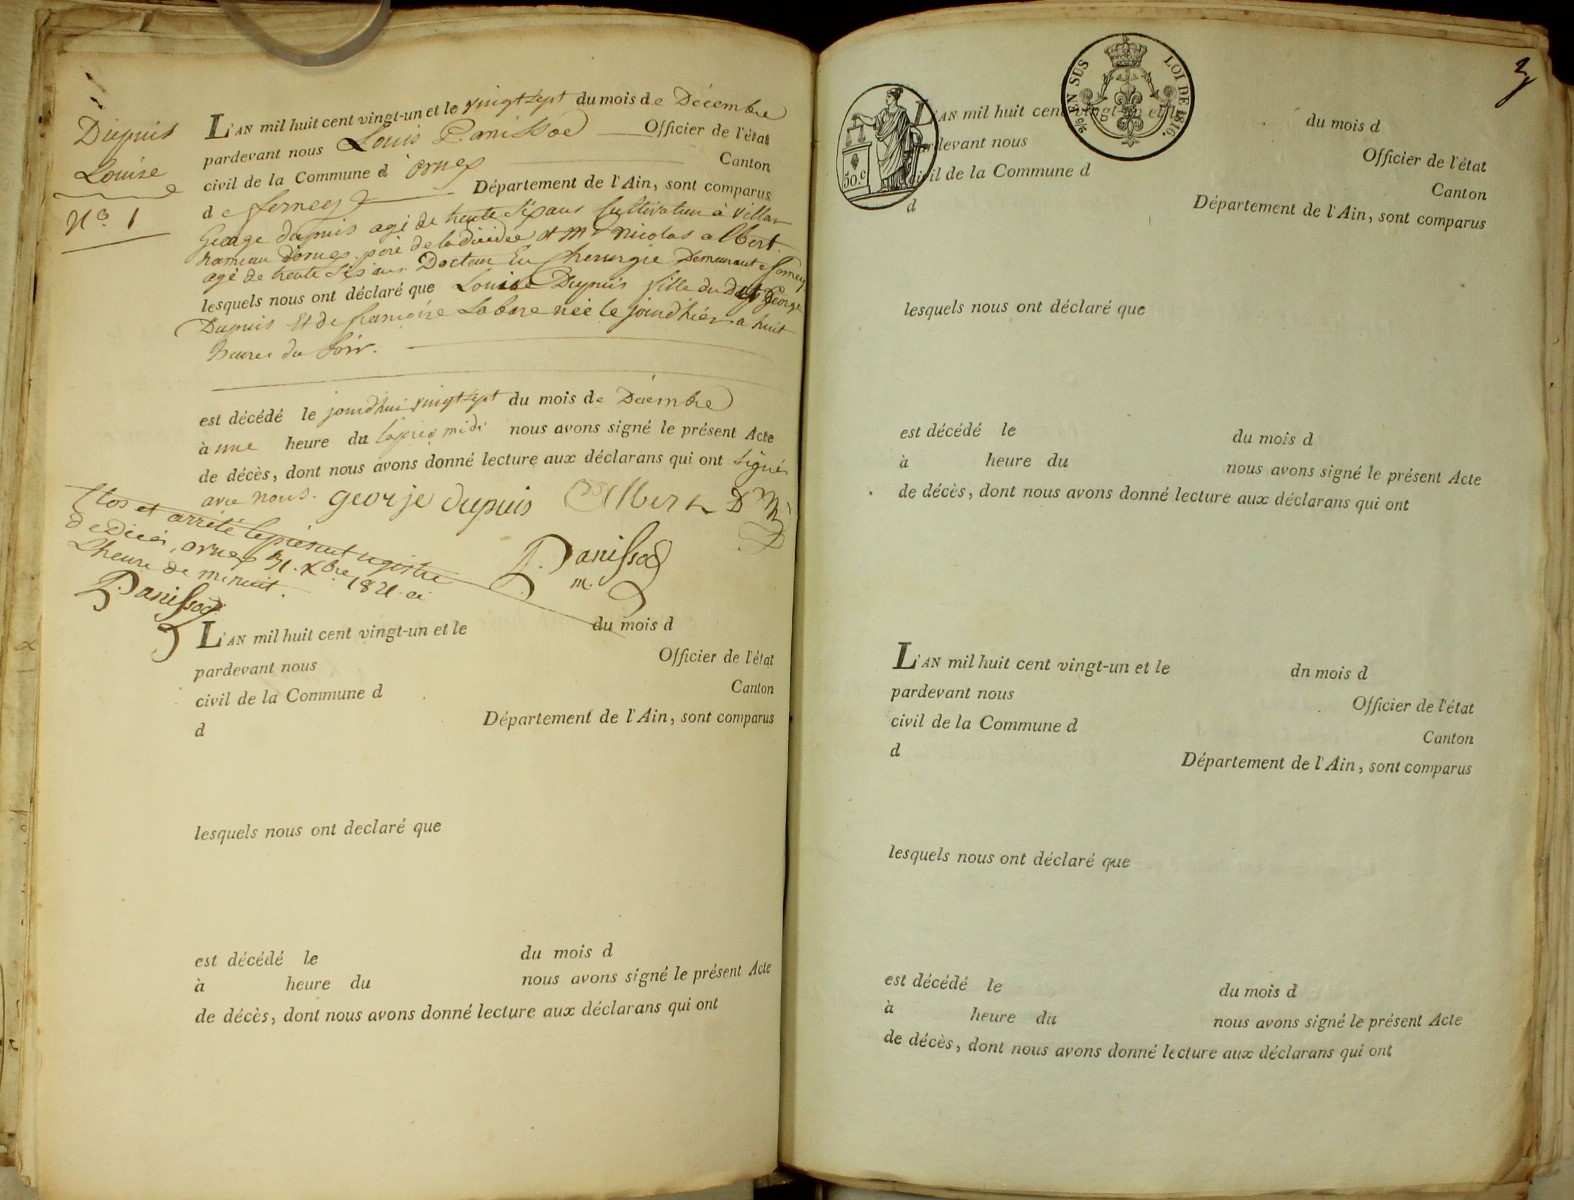 Dupuis
Louise
No. 1
L'AN mil huit cent vingt-un et le vingt sept du mois de Décembre
pardevant nous Louis Panissod Officier de l'état
civil de la Commune d'ornex Canton
de ferney Département de l'Ain, sont comparus
George dupuis agé de trente six ans Cultivateur à Villar
hameau d'ornex. père de la décédée et Mr. Nicolas albert
agé de trente six ans Docteur En Chirurgie Demeurant a ferney
lesquels nous ont déclaré que Louise Dupuis fille du dit George
Dupuis Et de francoise Labare née le jourd'hier a huit
heures du soir.
est décédé le jourdhui vingt sept du mois de Décembre
à une heure du l'après midi nous avons signé le présent Acte
de décès, dont nous avons donné lecture aux déclarans qui ont signé
avec nous. george dupuis Albert D M
Clos et arrêté le présent registre
de Décés, ornex 31. Xbre 1821. a
L'heure de minuit.
Panissod
P. Panissod
m.
L'AN mil huit cent vingt-un et le du mois d
pardevant nous Officier de l'état
civil de la Commune d Canton
d Département de l'Ain, sont comparus
lesquels nous ont declaré que
est décédé le du mois d
à heure du nous avons signé le présent Acte
de décès, dont nous avons donné lecture aux déclarans qui ont
3
50.c
EN SUS LOI DE 1816
L'AN mil huit cent vingt-un et le du mois d
pardevant nous Officier de l'état
civil de la Commune d Canton
d Département de l'Ain, sont comparus
lesquels nous ont déclaré que
est décédé le du mois d
à heure du nous avons signé le présent Acte
de décès, dont nous avons donné lecture aux déclarans qui ont
L'AN mil huit cent vingt-un et le dn mois d
pardevant nous Officier de l'état
civil de la Commune d Canton
d Département de l'Ain, sont comparus
lesquels nous ont déclaré que
est décédé le du mois d
à heure du nous avons signé le présent Acte
de décès, dont nous avons donné lecture aux déclarans qui ont